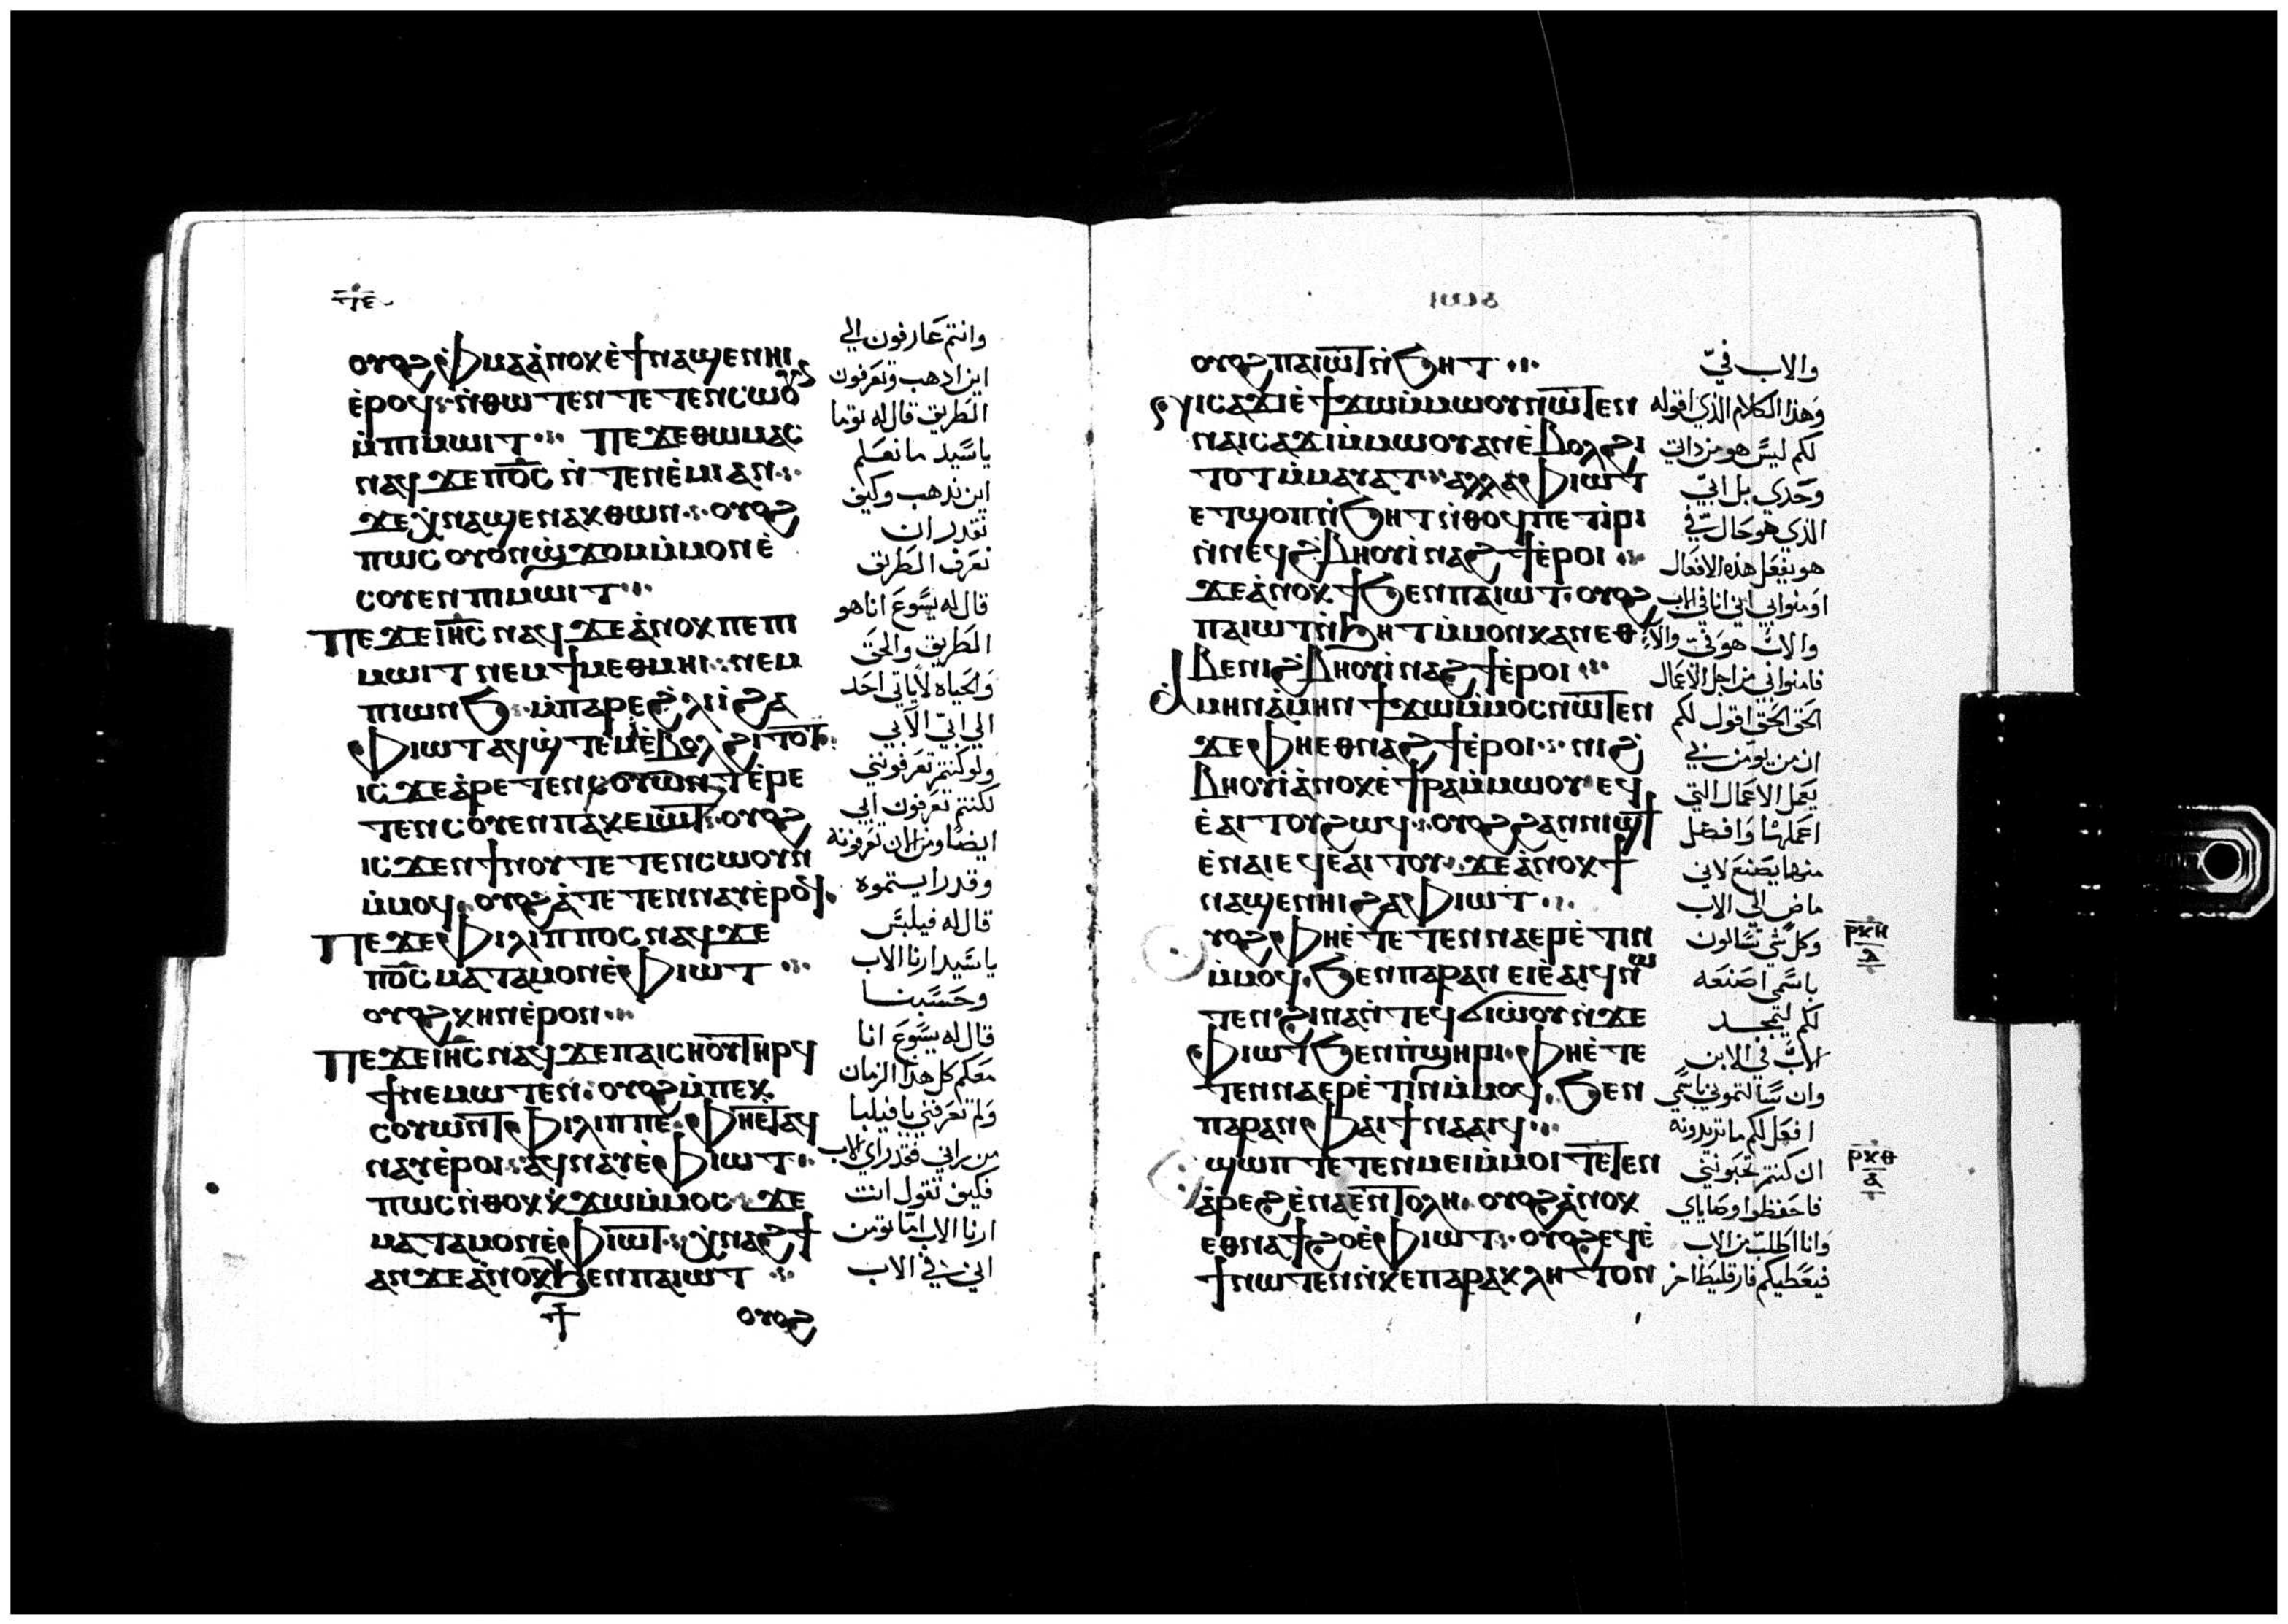 ⲟⲩⲟϩ ⲫⲙⲁ ⲁ̀ⲛⲟⲕ ⲉ̀ϯⲛⲁϣⲉⲛⲏⲓ
ⲉ̀ⲣⲟϥ ⲛ̀ⲑⲱⲧⲉⲛ ⲧⲉⲧⲉⲛⲥⲱⲟⲩⲛ
ⲙ̀ⲡⲓⲙⲱⲓⲧ ⲡⲉϫⲉ ⲑⲱⲙⲁⲥ
ⲛⲁϥ ϫⲉ ⲡⲟ̅ⲥ̅ ⲛ̀ⲧⲉⲛⲉ̀ⲙⲓ ⲁⲛ
ϫⲉ ⲭ̀ⲛⲁϣⲉⲛⲁⲕ ⲑⲱⲛ ⲟⲩⲟϩ
ⲡⲱⲥ ⲟⲩⲟⲛ ϣ̀ϫⲟⲙ ⲙ̀ⲙⲟⲛ ⲉ̀
ⲥⲟⲩⲉⲛ ⲡⲓⲙⲱⲓⲧ
ⲡⲉϫⲉ ⲓⲏ̅ⲥ̅ ⲛⲁϥ ϫⲉ ⲁ̀ⲛⲟⲕ ⲡⲉ ⲡⲓ
ⲙⲱⲓⲧ ⲛⲉⲙ ϯⲙⲉⲑⲙⲏⲓ ⲛⲉⲙ
ⲡⲓⲱⲛϧ ⲙ̀ⲡⲁⲣⲉ ϩ̀ⲗⲓ ⲓ̀ ϩⲁ
ⲫⲓⲱⲧ ⲁϥϣ̀ⲧⲉⲙⲓ̀ ⲉ̀ⲃⲟⲗ ϩⲓⲧⲟⲧ
ⲓⲥϫⲉ ⲁ̀ⲣⲉⲧⲉⲛⲥⲟⲩⲱⲛⲧ ⲉ̀ⲣⲉ
ⲧⲉⲛⲥⲟⲩⲉⲛ ⲡⲁⲕⲉⲓⲱⲧ ⲟⲩⲟϩ
ⲓⲥϫⲉⲛ ϯⲛⲟⲩ ⲧⲉⲧⲉⲛⲥⲱⲟⲩⲛ
ⲙ̀ⲙⲟϥ ⲟⲩⲟϩ ⲁ̀ⲧⲉⲧⲉⲛⲛⲁⲩ ⲉ̀ⲣⲟϥ
ⲡⲉϫⲉ ⲫⲓⲗⲓⲡⲡⲟⲥ ⲛⲁϥ ϫⲉ
ⲡⲟ̅ⲥ̅ ⲙⲁⲧⲁⲙⲟⲛ ⲉ̀ⲫⲓⲱⲧ
ⲟⲩⲟϩ ⲕⲏⲛ ⲉ̀ⲣⲟⲛ
ⲡⲉϫⲉ ⲓⲏ̅ⲥ̅ ⲛⲁϥ ϫⲉ ⲡⲁⲓⲥⲏⲟⲩ ⲧⲏⲣϥ
ϯⲛⲉⲙⲱⲧⲉⲛ ⲟⲩⲟϩ ⲙ̀ⲡⲉⲕ
ⲥⲟⲩⲱⲛⲧ ⲫⲓⲗⲓⲡⲡⲉ ⲫⲏⲉⲧⲁϥ
ⲛⲁⲩ ⲉ̀ⲣⲟⲓ ⲁϥⲛⲁⲩ ⲉ̀ⲫⲓⲱⲧ
ⲡⲱⲥ ⲛ̀ⲑⲟⲕ ⲭ̀ϫⲱ ⲙ̀ⲙⲟⲥ ϫⲉ
ⲙⲁⲧⲁⲙⲟⲛ ⲉ̀ⲫⲓⲱⲧ ⲭ̀ⲛⲁϩϯ
ⲁⲛ ϫⲉ ⲁ̀ⲛⲟⲕ ϧⲉⲛ ⲡⲁⲓⲱⲧ
ⲟⲩⲟϩ
وانتم عارفون الي
اين اذهب وتعرفون
الطريق قال له توما
ياسيد ما نعلم
اين تذهب وكيف
نقدر ان
نعرف الطريق
قال له يسوع انا هو
الطريق والحق
والحياه لاياتي احد
الي ابي الا بي
ولو كنتم تعرفونني
لكنتم تعرفون ابي
ايضا ومن الان تعرفونه
وقد رايتموه
قال له فيلبس
ياسيد ارنا الاب
وحسبنا
قال له يسوع انا
معكم كل هذا الزمان
ولم تعرفني يا فيلبا
من راني فقد راي الاب
فكيف تقول انت
ارنا الاب اما تومن
اني في الاب
ⲟⲩⲟϩ ⲡⲁⲓⲱⲧ ⲛ̀ϧⲏⲧ
ⲛⲓⲥⲁϫⲓ ⲉ̀ϯϫⲱ ⲙ̀ⲙⲱⲟⲩ ⲛⲱⲧⲉⲛ
ⲛⲁⲓⲥⲁϫⲓ ⲙ̀ⲙⲱⲟⲩ ⲁⲛ ⲉ̀ⲃⲟⲗ ϩⲓ
ⲧⲟⲧ ⲙ̀ⲙⲁⲩⲁⲧ ⲁⲗⲗⲁ ⲫⲓⲱⲧ
ⲉⲧϣⲟⲡ ⲛ̀ϧⲏⲧ ⲛ̀ⲑⲟϥ ⲡⲉⲧⲓ̀ⲣⲓ
ⲛ̀ⲛⲉϥϩ̀ⲃⲏⲟⲩⲓ̀ ⲛⲁϩϯ ⲉ̀ⲣⲟⲓ
ϫⲉ ⲁ̀ⲛⲟⲕ ϯϧⲉⲛ ⲡⲁⲓⲱⲧ ⲟⲩⲟϩ
ⲡⲁⲓⲱⲧ ⲛ̀ϧⲏⲧ ⲙ̀ⲙⲟⲛ ⲕⲁⲛ ⲉⲑ
ⲃⲉ ⲛⲓϩ̀ⲃⲏⲟⲩⲓ̀ ⲛⲁϩϯ ⲉ̀ⲣⲟⲓ
ⲁⲙⲏⲛ ⲁ̀ⲙⲏⲛ ϯϫⲱ ⲙ̀ⲙⲟⲥ ⲛⲱⲧⲉⲛ
ϫⲉ ⲫⲏⲉⲑⲛⲁϩϯ ⲉ̀ⲣⲟⲓ ⲛⲓϩ̀
ⲃⲏⲟⲩⲓ̀ ⲁ̀ⲛⲟⲕ ⲉ̀ϯⲣⲁ ⲙ̀ⲙⲱⲟⲩ ⲉϥ
ⲉ̀ⲁⲓⲧⲟⲩ ϩⲱϥ ⲟⲩⲟϩ ϩⲁⲛⲛⲓϣϯ
ⲉ̀ⲛⲁⲓ ⲉϥⲉ̀ⲁⲓⲧⲟⲩ ϫⲉ ⲁ̀ⲛⲟⲕ ϯ
ⲛⲁϣⲉⲛⲏⲓ ϩⲁ ⲫⲓⲱⲧ
ⲩⲟϩ ⲫⲏ ⲉ̀ⲧⲉⲧⲉⲛⲛⲁⲉⲣⲉ̀ⲧⲓⲛ
ⲙ̀ⲙⲟϥ ϧⲉⲛ ⲡⲁⲣⲁⲛ ⲉⲓⲉ̀ⲁⲓϥ ⲛⲱ
ⲧⲉⲛ ϩⲓⲛⲁ ⲛ̀ⲧⲉϥϭⲓⲱ̀ⲟⲩ ⲛ̀ϫⲉ
ⲫⲓⲱⲧ ϧⲉⲛ ⲡ̀ϣⲏⲣⲓ ⲫⲏ ⲉ̀ⲧⲉ
ⲧⲉⲛⲛⲁⲉⲣⲉ̀ⲧⲓⲛ ⲙ̀ⲙⲟϥ ϧⲉⲛ
ⲡⲁⲣⲁⲛ ⲫⲁⲓ ϯⲛⲁⲁⲓϥ
ϣⲱⲡ ⲧⲉⲧⲉⲛⲙⲉⲓ ⲙ̀ⲙⲟⲓ ⲧⲉⲧⲉⲛ
ⲁ̀ⲣⲉϩ ⲉ̀ⲛⲁⲉⲛⲧⲟⲗⲏ ⲟⲩⲟϩ ⲁ̀ⲛⲟⲕ
ⲉⲑⲛⲁϯϩⲟ ⲉ̀ⲫⲓⲱⲧ ⲟⲩⲟϩ ⲉϥⲉ̀
ϯⲛⲱⲧⲉⲛ ⲛ̀ⲕⲉⲡⲁⲣⲁⲕⲗⲏⲧⲟⲛ
والاب فيّ
وهذا الكلام الذي اقوله
لكم ليس هو من ذاتي
وحدي بل ابي
الذي هو حال فيّ
هو يفعل هذه الافعال
اومنوا بي اني انا في الاب
والاب هو في والا
فامنوا بي من اجل الاعمال
الحق الحق اقول لكم
ان من يومن بي
يعمل الاعمال التي
اعملها وافضل
منها يصنع لاني
ماض الي الاب
وكل شي تسالون
باسمي اصنعه
لكم ليتمجد
الاب في الابن
وان سالتموني باسمي
افعل لكم ما تريدونه
ان كنتم تحبونني
فاحفظوا وصاياي
وانا اطلب من الاب
فيعطيكم فارقليطا اخر
ⲣⲕⲏ
ⲣⲕⲑ